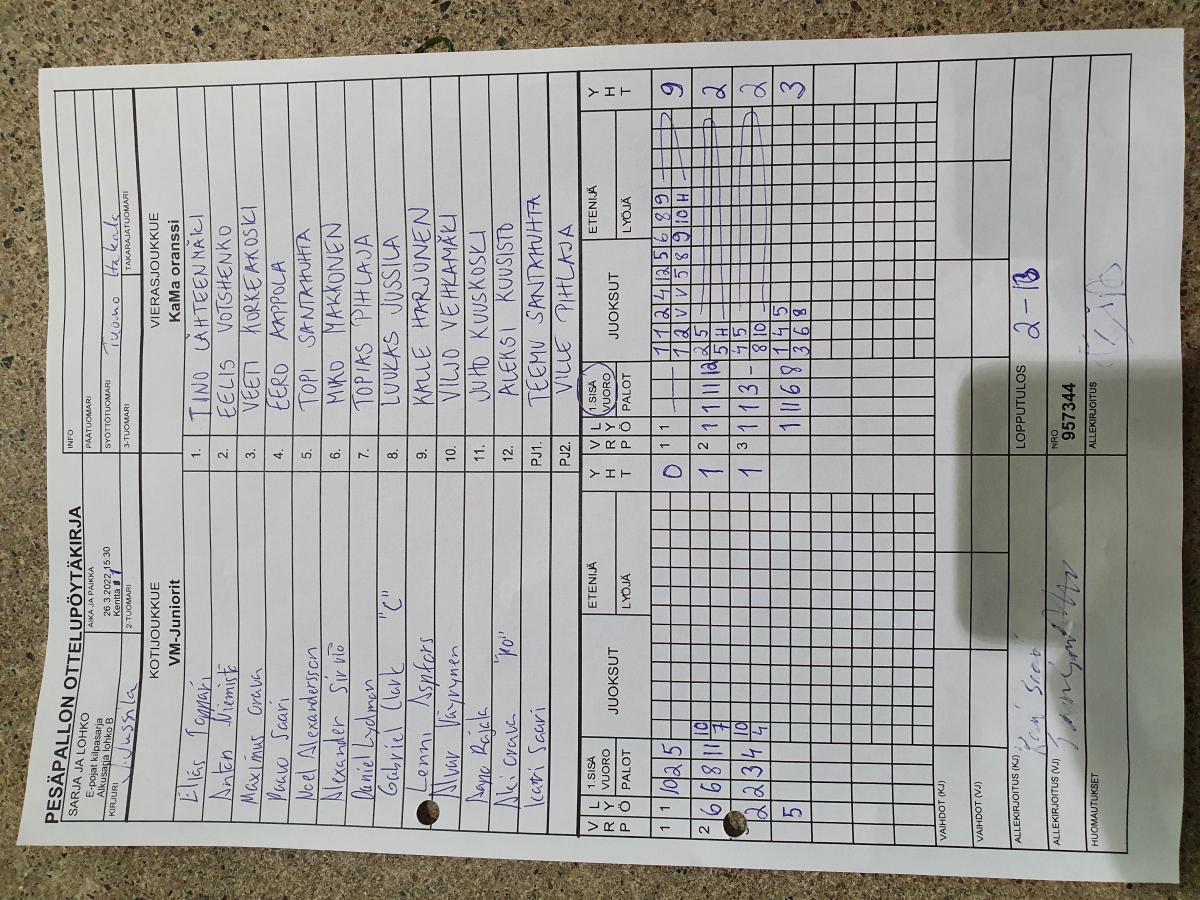 PESÄPALLON OTTELUPÖYTÄKIRJA
SARJA JA LOHKO
E-pojat kilpasarja
Alkusarja lohko B
AIKA JA PAIKKA
26.3.2022 15:30
Kenttä 1
INFO
PÄÄTUOMARI
SYÖTTÖTUOMARI
Tuomo Hakala
KIRJURI
V. Jussila
2-TUOMARI
3-TUOMARI
TAKARAJATUOMARI
KOTIJOUKKUE
VM-Juniorit
VIERASJOUKKUE
KaMa oranssi
Elias Toppari 1. TINO LÄHTEENMÄKI
Anton Niemistö 2. EELIS VOTSHENKO
Maximus Orava 3. VEETI KORKEAKOSKI
Paavo Saari 4. EERO AAPPOLA
Noel Alexandersson 5. TOPI SANTAHUHTA
Alexander Sirviö 6. MIKO MAKKONEN
Daniel Lydman 7. TOPIAS PIHLAJA
Gabriel Clark "C" 8. LUUKAS JUSSILA
Lenni Aspfors 9. KALLE HARJUNEN
Alvar Väyrynen 10. VILJO VEHKAMÄKI
Aapo Rajala 11. JUHO KUUSKOSKI
Aki Orava "PO" 12. ALEKSI KUUSISTO
Katri Saari PJ1. TEEMU SANTAHUHTA
PJ2. VILLE PIHLAJA
V P L R Y Ö 1.SISÄ VUORO PALOT JUOKSUT ETENIJÄ LYÖJÄ Y H T
V P L R Y Ö 1.SISÄ VUORO PALOT JUOKSUT ETENIJÄ LYÖJÄ Y H T
1 1 10 2 5 0 1 1 1 1 2 4 12 5 6 8 9 9
1 2 V V 5 8 9 10 H
2 6 6 8 11 10 1 2 1 1 11 12 2 5 2
7 5 H
2 2 3 4 10 1 3 1 1 3 - 4 5 2
4 8 10
5 1 11 6 8 1 4 5 3
3 6 8
VAIHDOT (KJ)
VAIHDOT (VJ)
ALLEKIRJOITUS (KJ)
LOPPUTULOS
2-13
ALLEKIRJOITUS (VJ)
NRO
957344
HUOMAUTUKSET
ALLEKIRJOITUS